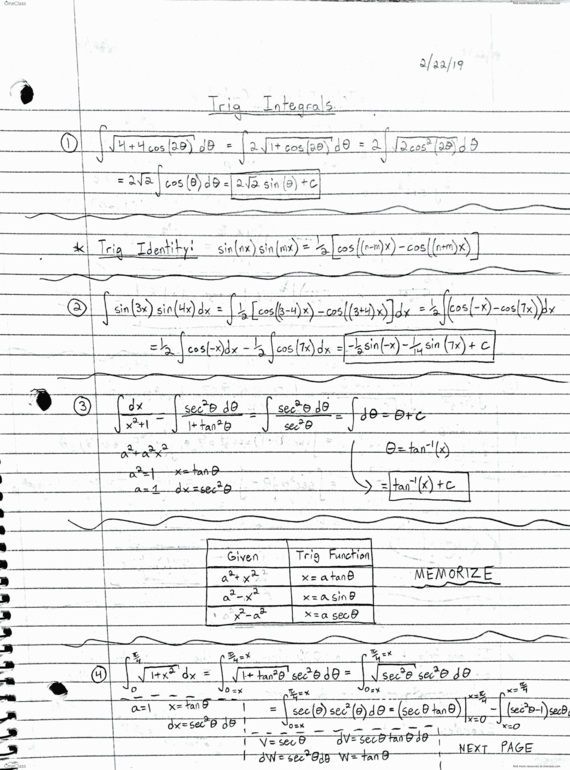 OneClass
2/22/19
Trig Integrals
① ∫√(4+4cos(2θ)) dθ = ∫2√(1+cos(2θ)) dθ = 2∫√(2cos²(2θ)) dθ
= 2√2 ∫cos(θ) dθ = 2√2 sin(θ) + C
* Trig Identity: sin(nx) sin(mx) = 1/2 [cos((n-m)x) - cos((n+m)x)]
② ∫sin(3x) sin(4x) dx = ∫1/2 [cos((3-4)x) - cos((3+4)x)] dx = 1/2 ∫(cos(-x) - cos(7x)) dx
= 1/2 ∫cos(-x)dx - 1/2 ∫cos(7x) dx = -1/2 sin(-x) - 1/14 sin(7x) + C
③ ∫ dx/(x²+1) = ∫ sec²θ dθ/(1+tan²θ) = ∫ sec²θ dθ/sec²θ = ∫dθ = θ + C
a² + a²x² θ = tan⁻¹(x)
a² = 1 x = tanθ
a = 1 dx = sec²θ = tan⁻¹(x) + C
Given Trig Function
a² + x² x = a tanθ MEMORIZE
a² - x² x = a sinθ
x² - a² x = a secθ
④ ∫₀^(π/4) √(1+x²) dx = ∫_(0=x)^(π/4=x) √(1+tan²θ) sec²θ dθ = ∫_(0=x)^(π/4=x) √(sec²θ) sec²θ dθ
a=1 x = tanθ = ∫_(0=x)^(π/4=x) sec(θ) sec²(θ) dθ = (secθ tanθ)|_(x=0)^(x=π/4) - ∫_(x=0)^(x=π/4) (sec²θ-1) secθ
dx = sec²θ dθ
V = secθ dV = secθ tanθ dθ NEXT PAGE
dW = sec²θ dθ W = tanθ